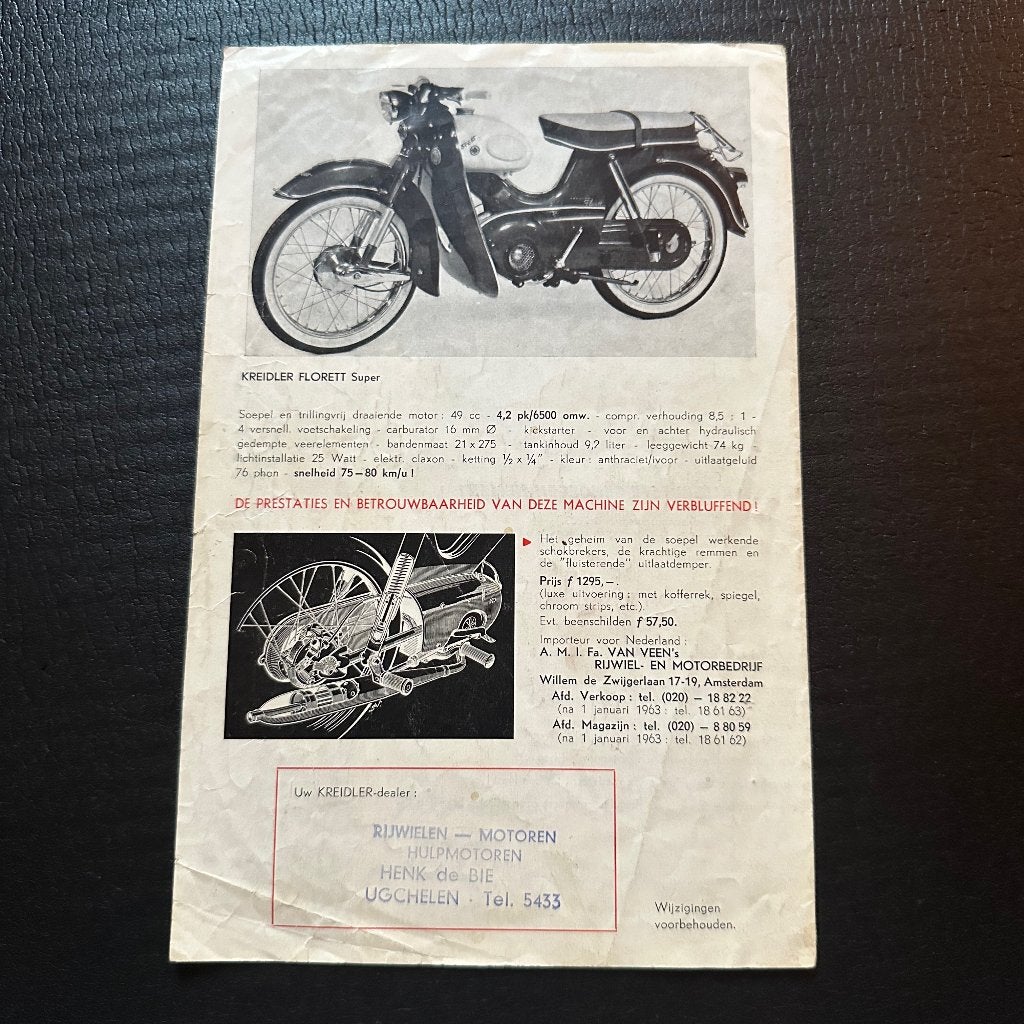 KREIDLER FLORETT Super
Soepel en trillingvrij draaiende motor : 49 cc - 4,2 pk/6500 omw. - compr. verhouding 8,5 : 1 -
4 versnell. voetschakeling - carburator 16 mm Ø - kickstarter - voor en achter hydraulisch
gedempte veerelementen - bandenmaat 21 x 275 - tankinhoud 9,2 liter - leeggewicht 74 kg -
lichtinstallatie 25 Watt - elektr. claxon - ketting ½ x ¼" - kleur : anthraciet/ivoor - uitlaatgeluid
76 phon - snelheid 75—80 km/u !
DE PRESTATIES EN BETROUWBAARHEID VAN DEZE MACHINE ZIJN VERBLUFFEND !
Het geheim van de soepel werkende
schokbrekers, de krachtige remmen en
de "fluisterende" uitlaatdemper.
Prijs ƒ 1295,—.
(luxe uitvoering : met kofferrek, spiegel,
chroom strips, etc.)
Evt. beenschilden ƒ 57,50.
Importeur voor Nederland :
A. M. I. Fa. VAN VEEN's
RIJWIEL- EN MOTORBEDRIJF
Willem de Zwijgerlaan 17-19, Amsterdam
Afd. Verkoop : tel. (020) — 18 82 22
(na 1 januari 1963 : tel. 18 61 63)
Afd. Magazijn : tel. (020) — 8 80 59
(na 1 januari 1963 : tel. 18 61 62)
Uw KREIDLER-dealer :
RIJWIELEN — MOTOREN
HULPMOTOREN
HENK de BIE
UGCHELEN · Tel. 5433
Wijzigingen
voorbehouden.